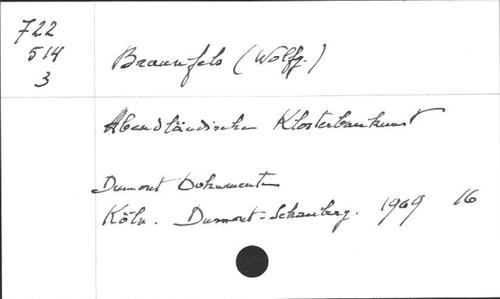 722
514
3
Braunfels (Wolfg.)
Abendländische Klosterbaukunst
Dumont Dokumente
Köln. Dumont-Schauberg. 1969 16